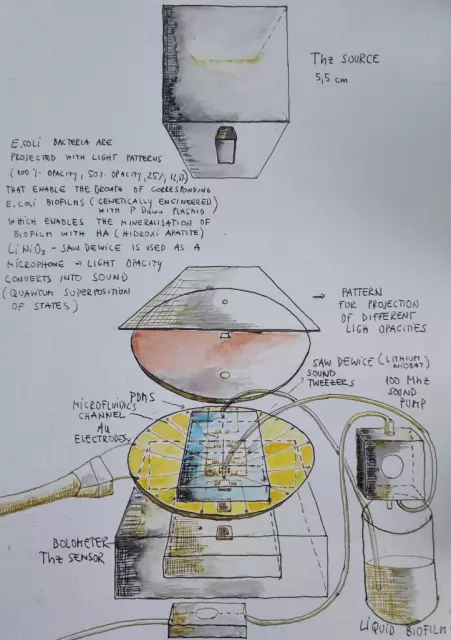 THz SOURCE
5,5 cm
E.COLI BACTERIA ARE
PROJECTED WITH LIGHT PATTERNS
(100% OPACITY, 50% OPACITY, 25%, 12,5%)
THAT ENABLE THE GROWTH OF CORRESPONDING
E.COLI BIOFILMS (GENETICALLY ENGINEERED)
WITH P DAWN PLASMID
WHICH ENABLES THE MINERALISATION OF
BIOFILM WITH HA (HIDROXI APATITE)
LiNiO3 - SAW DEWICE IS USED AS A
MICROPHONE → LIGHT OPACITY
CONVERTS INTO SOUND
(QUANTUM SUPERPOSITION
OF STATES)
→ PATTERN
FOR PROJECTION
OF DIFFERENT
LIGH OPACITIES
SAW DEWICE (LITHIUM
NIOBAT)
SOUND
TWEEZERS
100 MHz
SOUND
PUMP
PDMS
MICROFLUIDICS
CHANNEL
AU
ELECTRODES
BOLOMETER
THz SENSOR
LIQUID BIOFILM